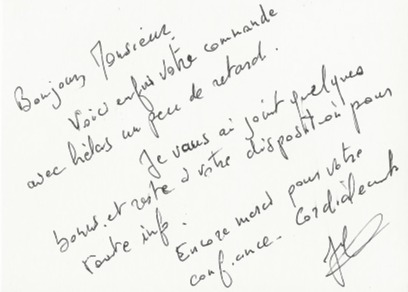 Bonjour Monsieur.
Voici enfin votre commande
avec hélas un peu de retard.
Je vous ai joint quelques
bonus, et reste à votre disposition pour
toute info.
Encore merci pour votre
confiance - Cordialement